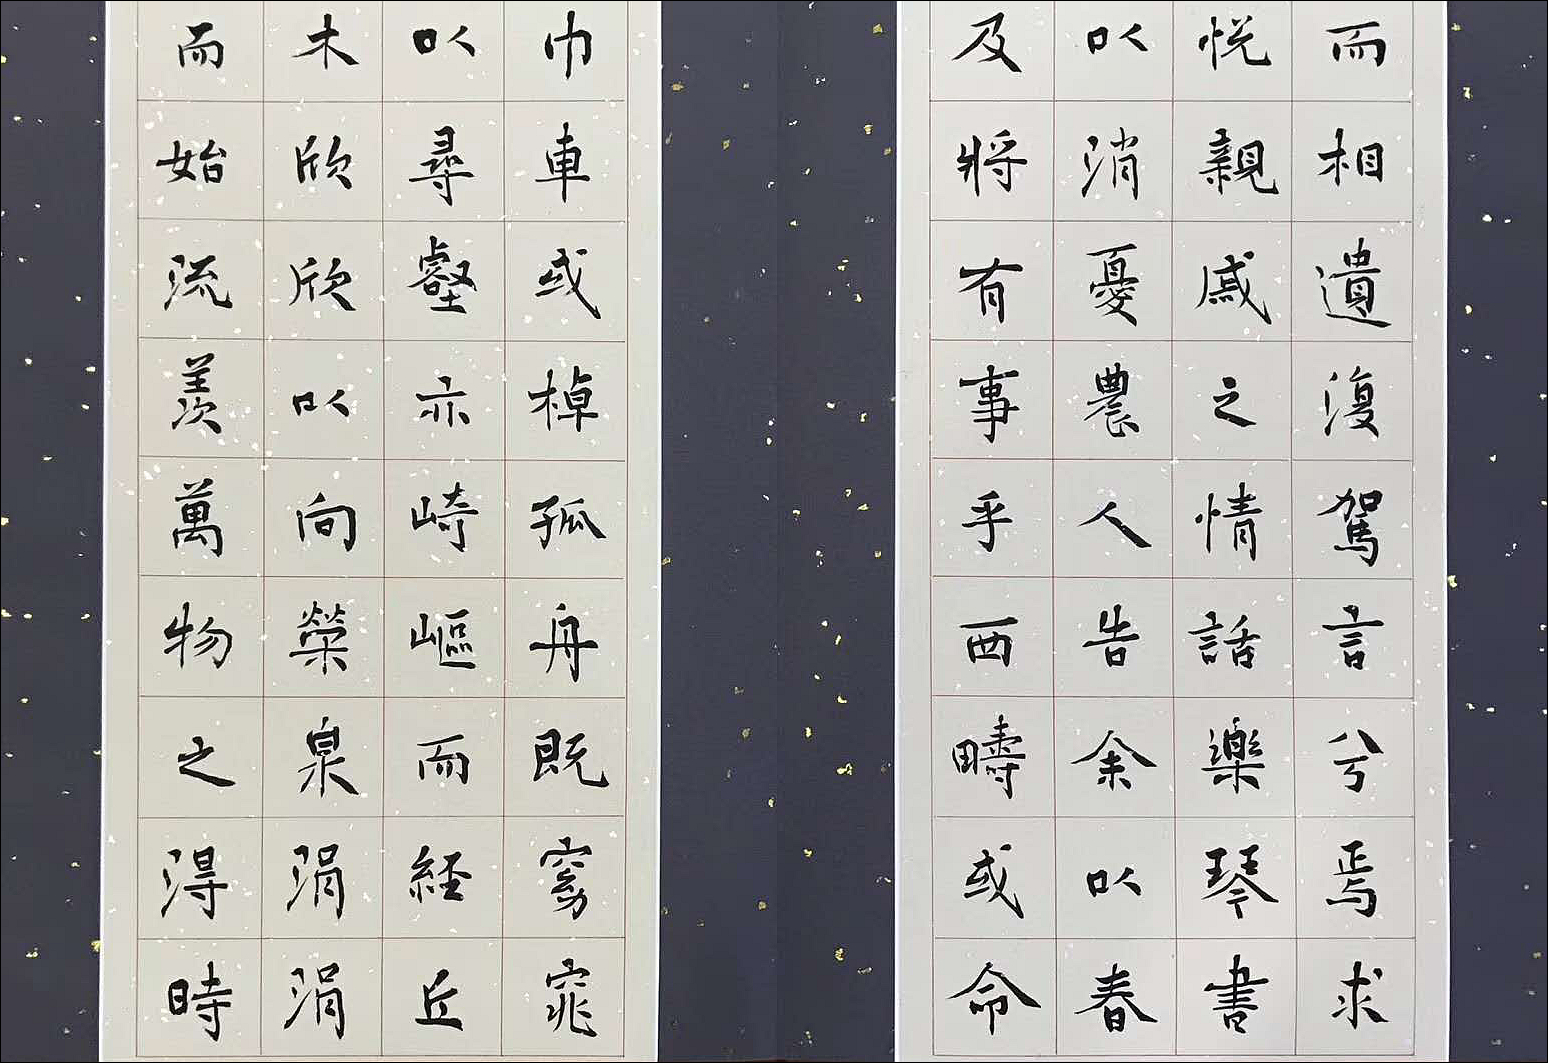 而相遺復駕言兮焉求
悅親戚之情話樂琴書
以消憂農人告余以春
及將有事乎西疇或命
巾車或棹孤舟既窈窕
以尋壑亦崎嶇而経丘
木欣欣以向榮泉涓涓
而始流羨萬物之得時